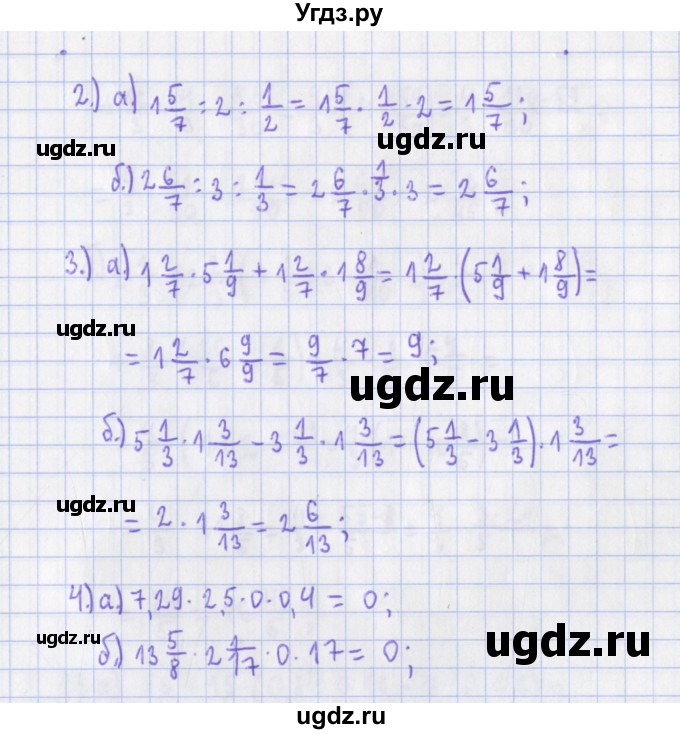 Угдз.ру
2.) а) 1 5/7 : 2 : 1/2 = 1 5/7 · 1/2 · 2 = 1 5/7;
ugdz.ru
ugdz.ru
б.) 2 6/7 : 3 : 1/3 = 2 6/7 · 1/3 · 3 = 2 6/7;
3.) а) 1 2/7 · 5 1/9 + 1 2/7 · 1 8/9 = 1 2/7 · (5 1/9 + 1 8/9) =
ugdz.ru
= 1 2/7 · 6 9/9 = 9/7 · 7 = 9;
ugdz.ru
б.) 5 1/3 · 1 3/13 - 3 1/3 · 1 3/13 = (5 1/3 - 3 1/3) · 1 3/13 =
ugdz.ru
= 2 · 1 3/13 = 2 6/13;
4.) а) 7,29 · 2,5 · 0 · 0,4 = 0;
ugdz.ru
ugdz.ru
б.) 13 5/8 · 2 1/17 · 0 · 17 = 0;
ugdz.ru